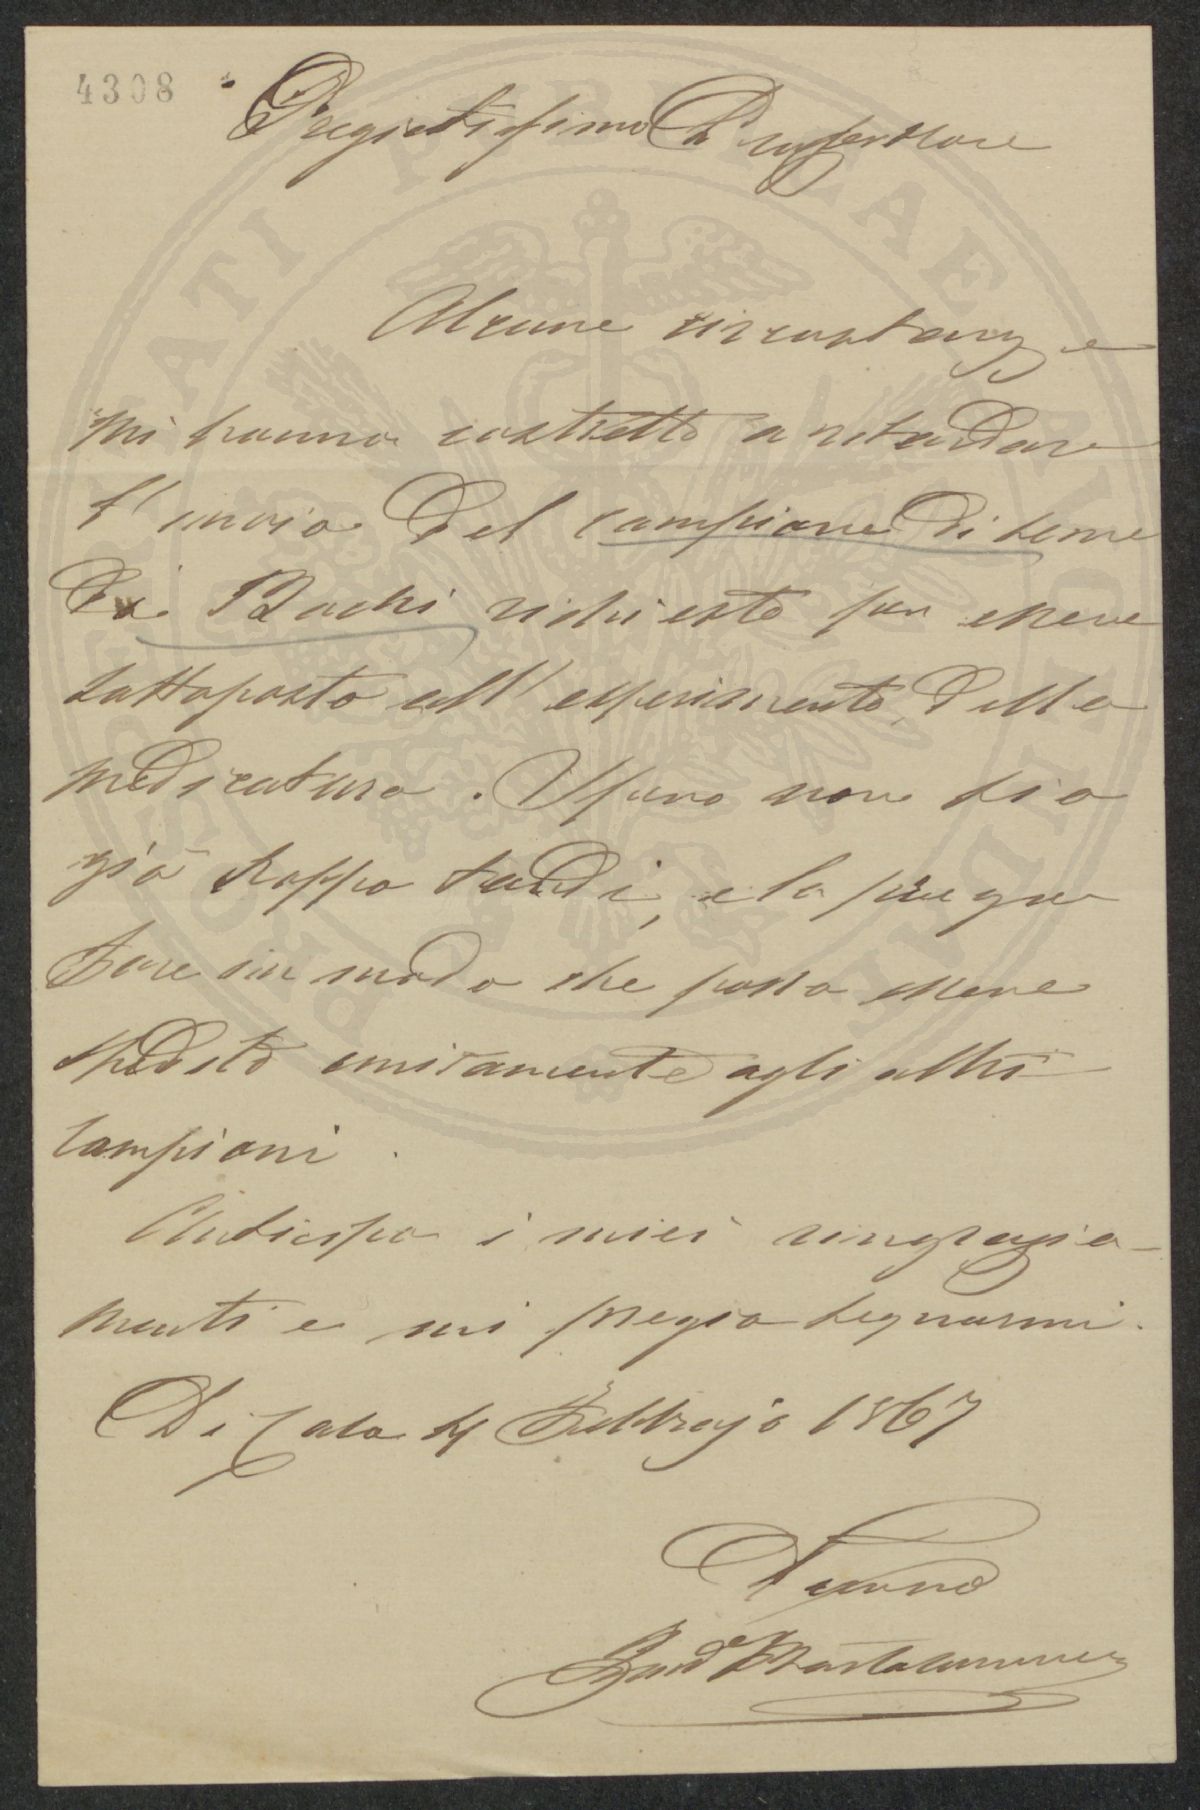 4308
Pregiatissimo Professore
Alcune circostanze
mi hanno costretto a ritardare
l'invio del campione di seme
di Bachi richiesto per essere
sottoposto all'esperimento della
medicatura. Spero non sia
già troppo tardi, e la prego
fare in modo che possa essere
spedito unitamente agli altri
campioni.
Anticipo i miei ringrazia-
menti e mi pregio segnarmi.
Di Casa 4 Febbrajo 1867
Bartolommei
PROSPERITATI PUBLICAE AUGENDAE